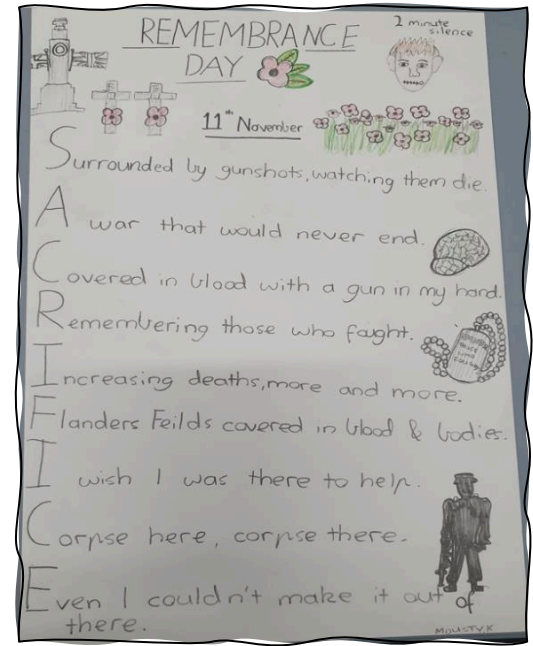 REMEMBRANCE
DAY
2 minute
silence
11th November
Surrounded by gunshots, watching them die.
A war that would never end.
Covered in blood with a gun in my hand.
Remembering those who faught.
Increasing deaths, more and more.
Flanders Feilds covered in blood & bodies.
I wish I was there to help.
Corpse here, corpse there.
Even I couldn't make it out of
there.